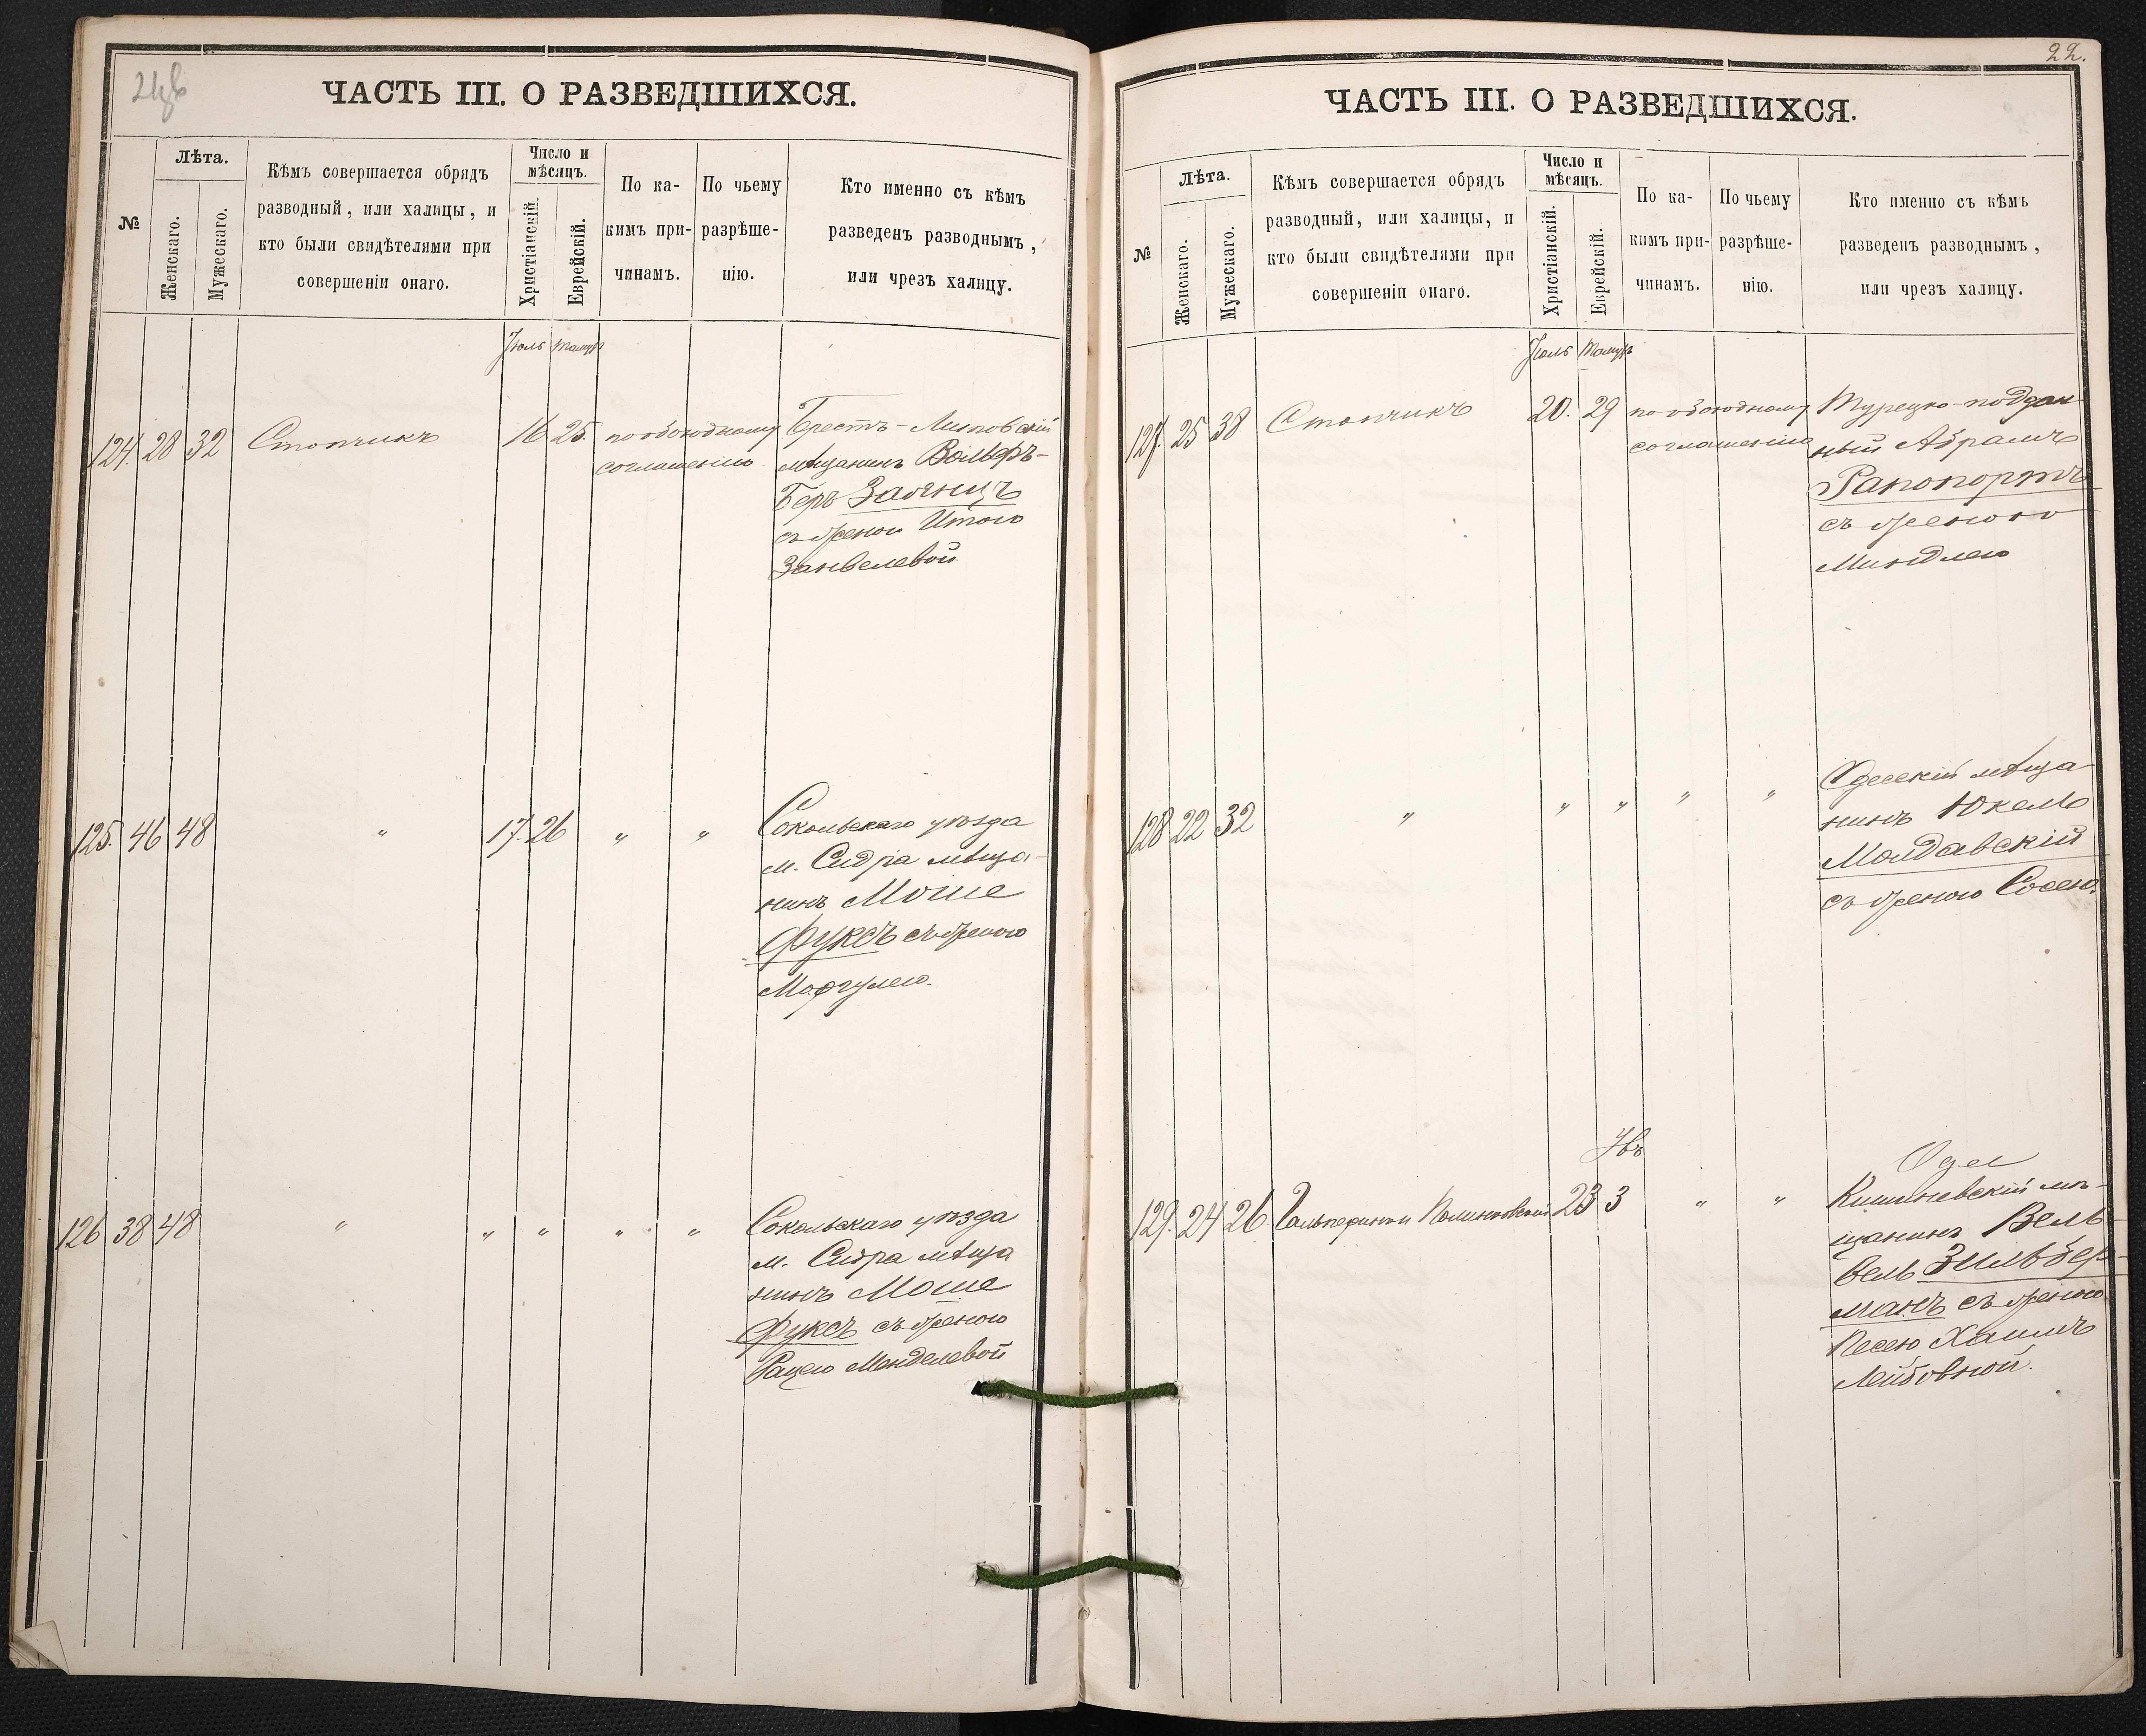 ЧАСТЬ III. О РАЗВЕДШИХСЯ.
№
Лѣта.
Женскаго.
Мужескаго.
Кѣмъ совершается обрядъ
разводный, или халицы, и
кто были свидѣтелями при
совершеніи онаго.
Число и
мѣсяцъ.
Христіанскій.
Еврейскій.
По ка-
кимъ при-
чинамъ.
По чьему
разрѣше-
нію.
Кто именно съ кѣмъ
разведенъ разводнымъ,
или чрезъ халицу.
Іюль Тамузъ
124. 28 32 Столчикъ 16 25. по обоюдному Брестъ-Литовскій
соглашенію мѣщанинъ Вольфъ-
Беръ Заяницъ
съ женою Итою
Занвелевой
125. 46 48 " 17. 26 " " Сокольскаго уѣзда
м. Сидра мѣща-
нинъ Моше
Фуксъ съ женою
126 38 48 " " " " " Сокольскаго уѣзда
м. Сидра мѣща
нинъ Моше
Фуксъ съ женою
Менделевой
22.
ЧАСТЬ III. О РАЗВЕДШИХСЯ.
№
Лѣта.
Женскаго.
Мужескаго.
Кѣмъ совершается обрядъ
разводный, или халицы, и
кто были свидѣтелями при
совершеніи онаго.
Число и
мѣсяцъ.
Христіанскій.
Еврейскій.
По ка-
кимъ при-
чинамъ.
По чьему
разрѣше-
нію.
Кто именно съ кѣмъ
разведенъ разводнымъ,
или чрезъ халицу.
Іюль Тамузъ
127. 25 38 Столчикъ 20. 29 по обоюдному Турецко-поддан
соглашенію ный Абрамъ
Рапопортъ
съ женою
Миндлею
128 22 32 " " " " " Одесскій мѣща
нинъ Юкель
Молдавскій
съ женою Сосею.
129. 24 26 Гальперинъ и Полинковскій 23 3 " " Кишиневскій мѣ-
щанинъ Вель-
вель Зильбер-
манъ съ женою
Песею Хаимъ
Лейбовной.